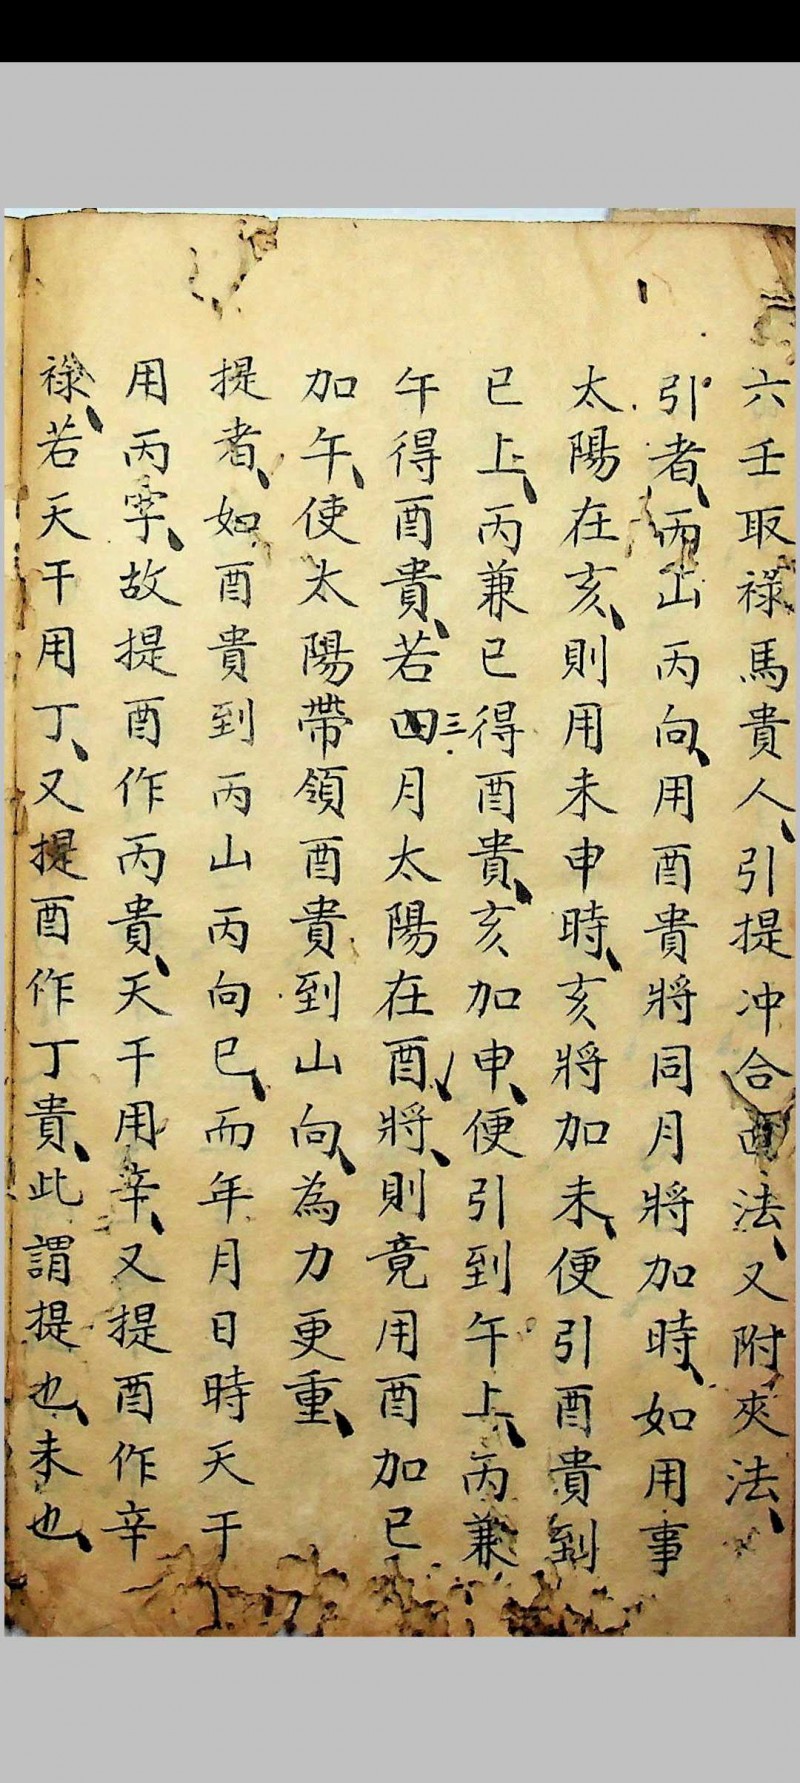 六壬取祿馬貴人、引提冲合四法、又附夾法、
引者、丙山丙向、用酉貴將同月將加時、如用事
太陽在亥、則用未申時、亥將加未、便引酉貴到
巳上、丙兼巳得酉貴、亥加申、便引到午上、丙兼
午得酉貴、若四三月太陽在酉將、則竟用酉加巳
加午、使太陽帶領酉貴到山向、為力更重、
提者、如酉貴到丙山丙向巳、而年月日時天干
用丙字、故提酉作丙貴、天干用辛、又提酉作辛
祿、若天干用丁、又提酉作丁貴、此謂提也、未也、